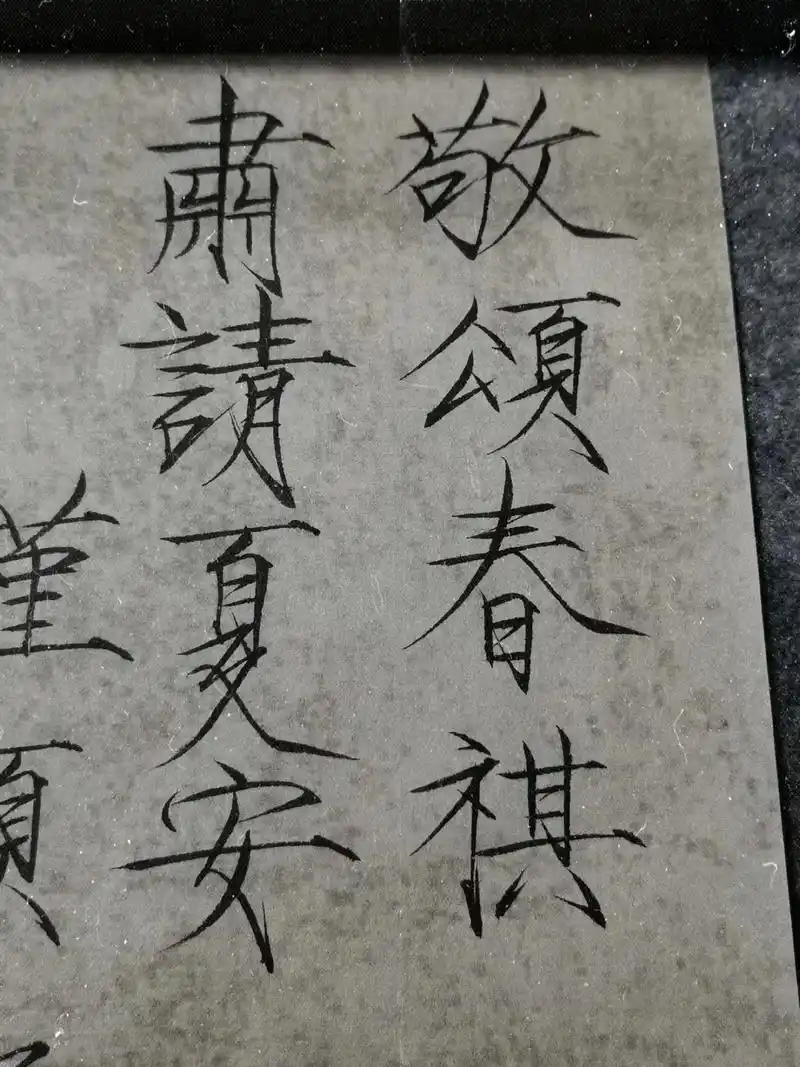 敬頌春祺
肅請夏安